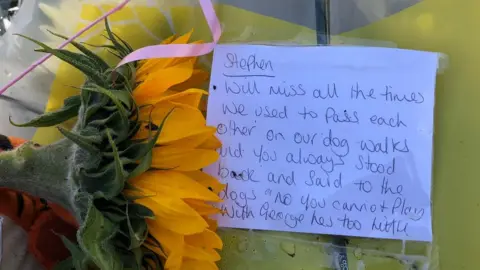 Stephen
Will miss all the times
we used to pass each
other on our dog walks
and you always stood
back and said to the
dogs "No you cannot play
with George hes too little